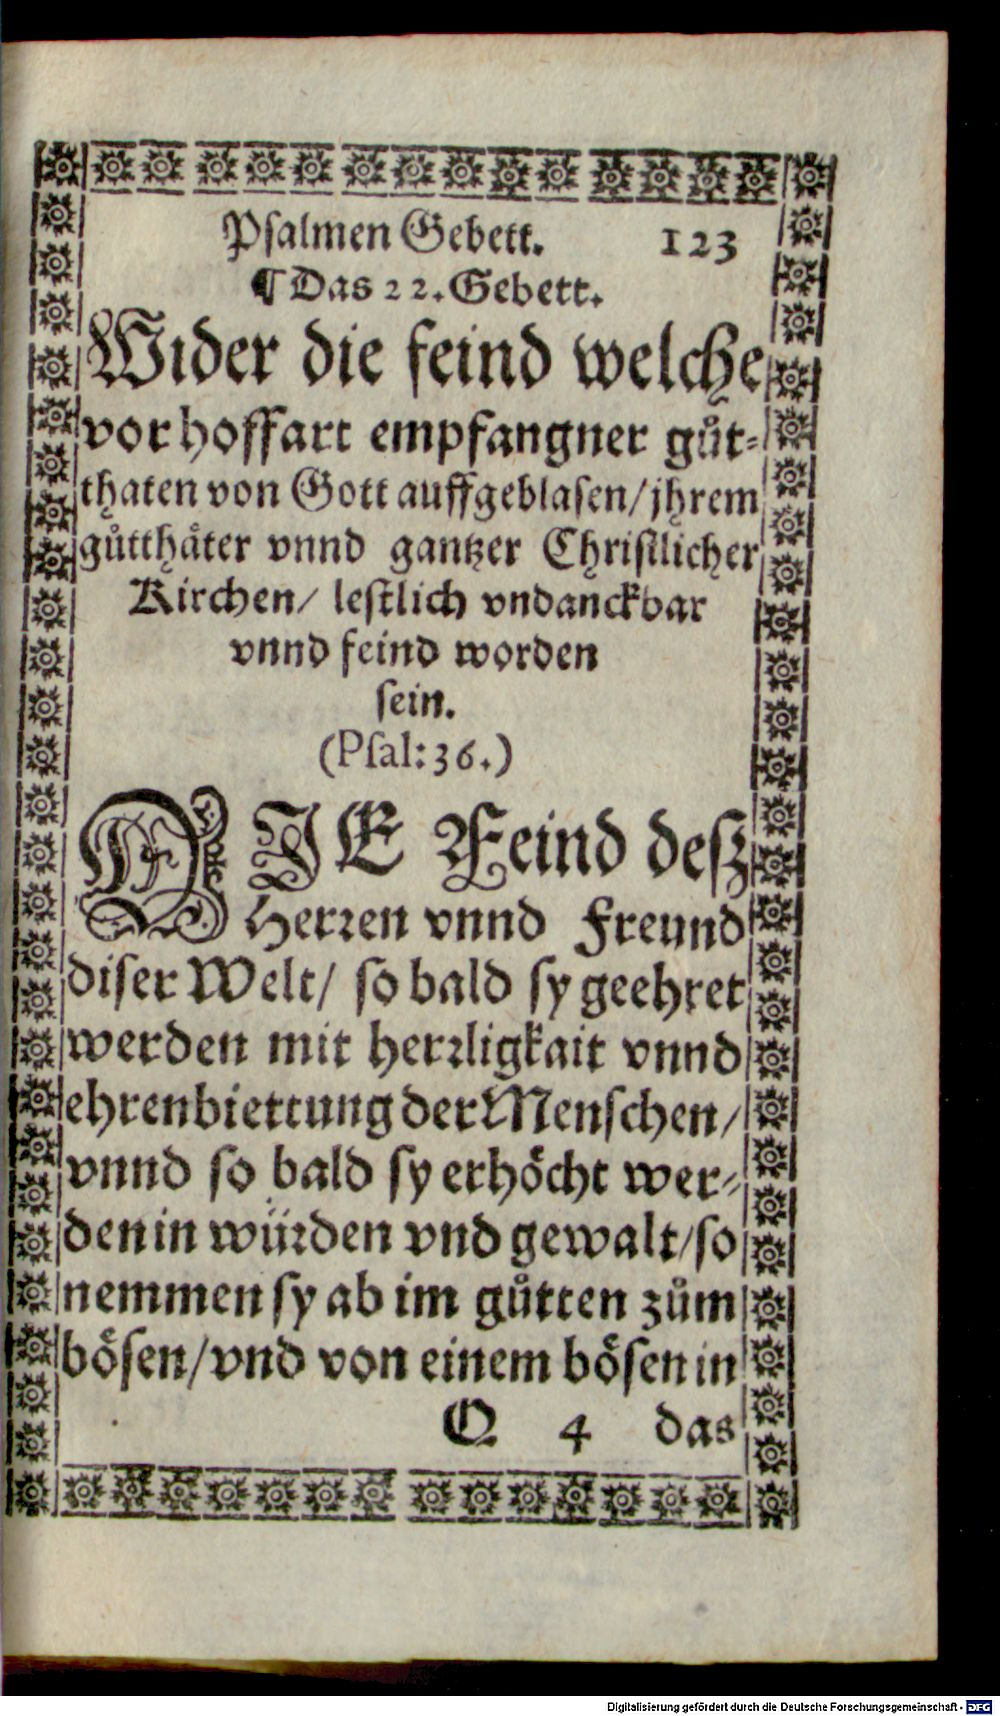 Psalmen Gebett. 123
¶ Das 22. Gebett.
Wider die feind welche
vor hoffart empfangner gůt-
thaten von Gott auffgeblasen/ jhrem
gůtthäter vnnd gantzer Christlicher
Kirchen/ lestlich vndanckbar
vnnd feind worden
sein.
(Psal: 36.)
DIE Feind desz
Herren vnnd Freund
diser Welt/ so bald sy geehret
werden mit herrligkait vnnd
ehrenbiettung der Menschen/
vnnd so bald sy erhöcht wer-
den in würden vnd gewalt/ so
nemmen sy ab im gůtten zům
bösen/ vnd von einem bösen in
Q 4 das
Digitalisierung gefördert durch die Deutsche Forschungsgemeinschaft - DFG